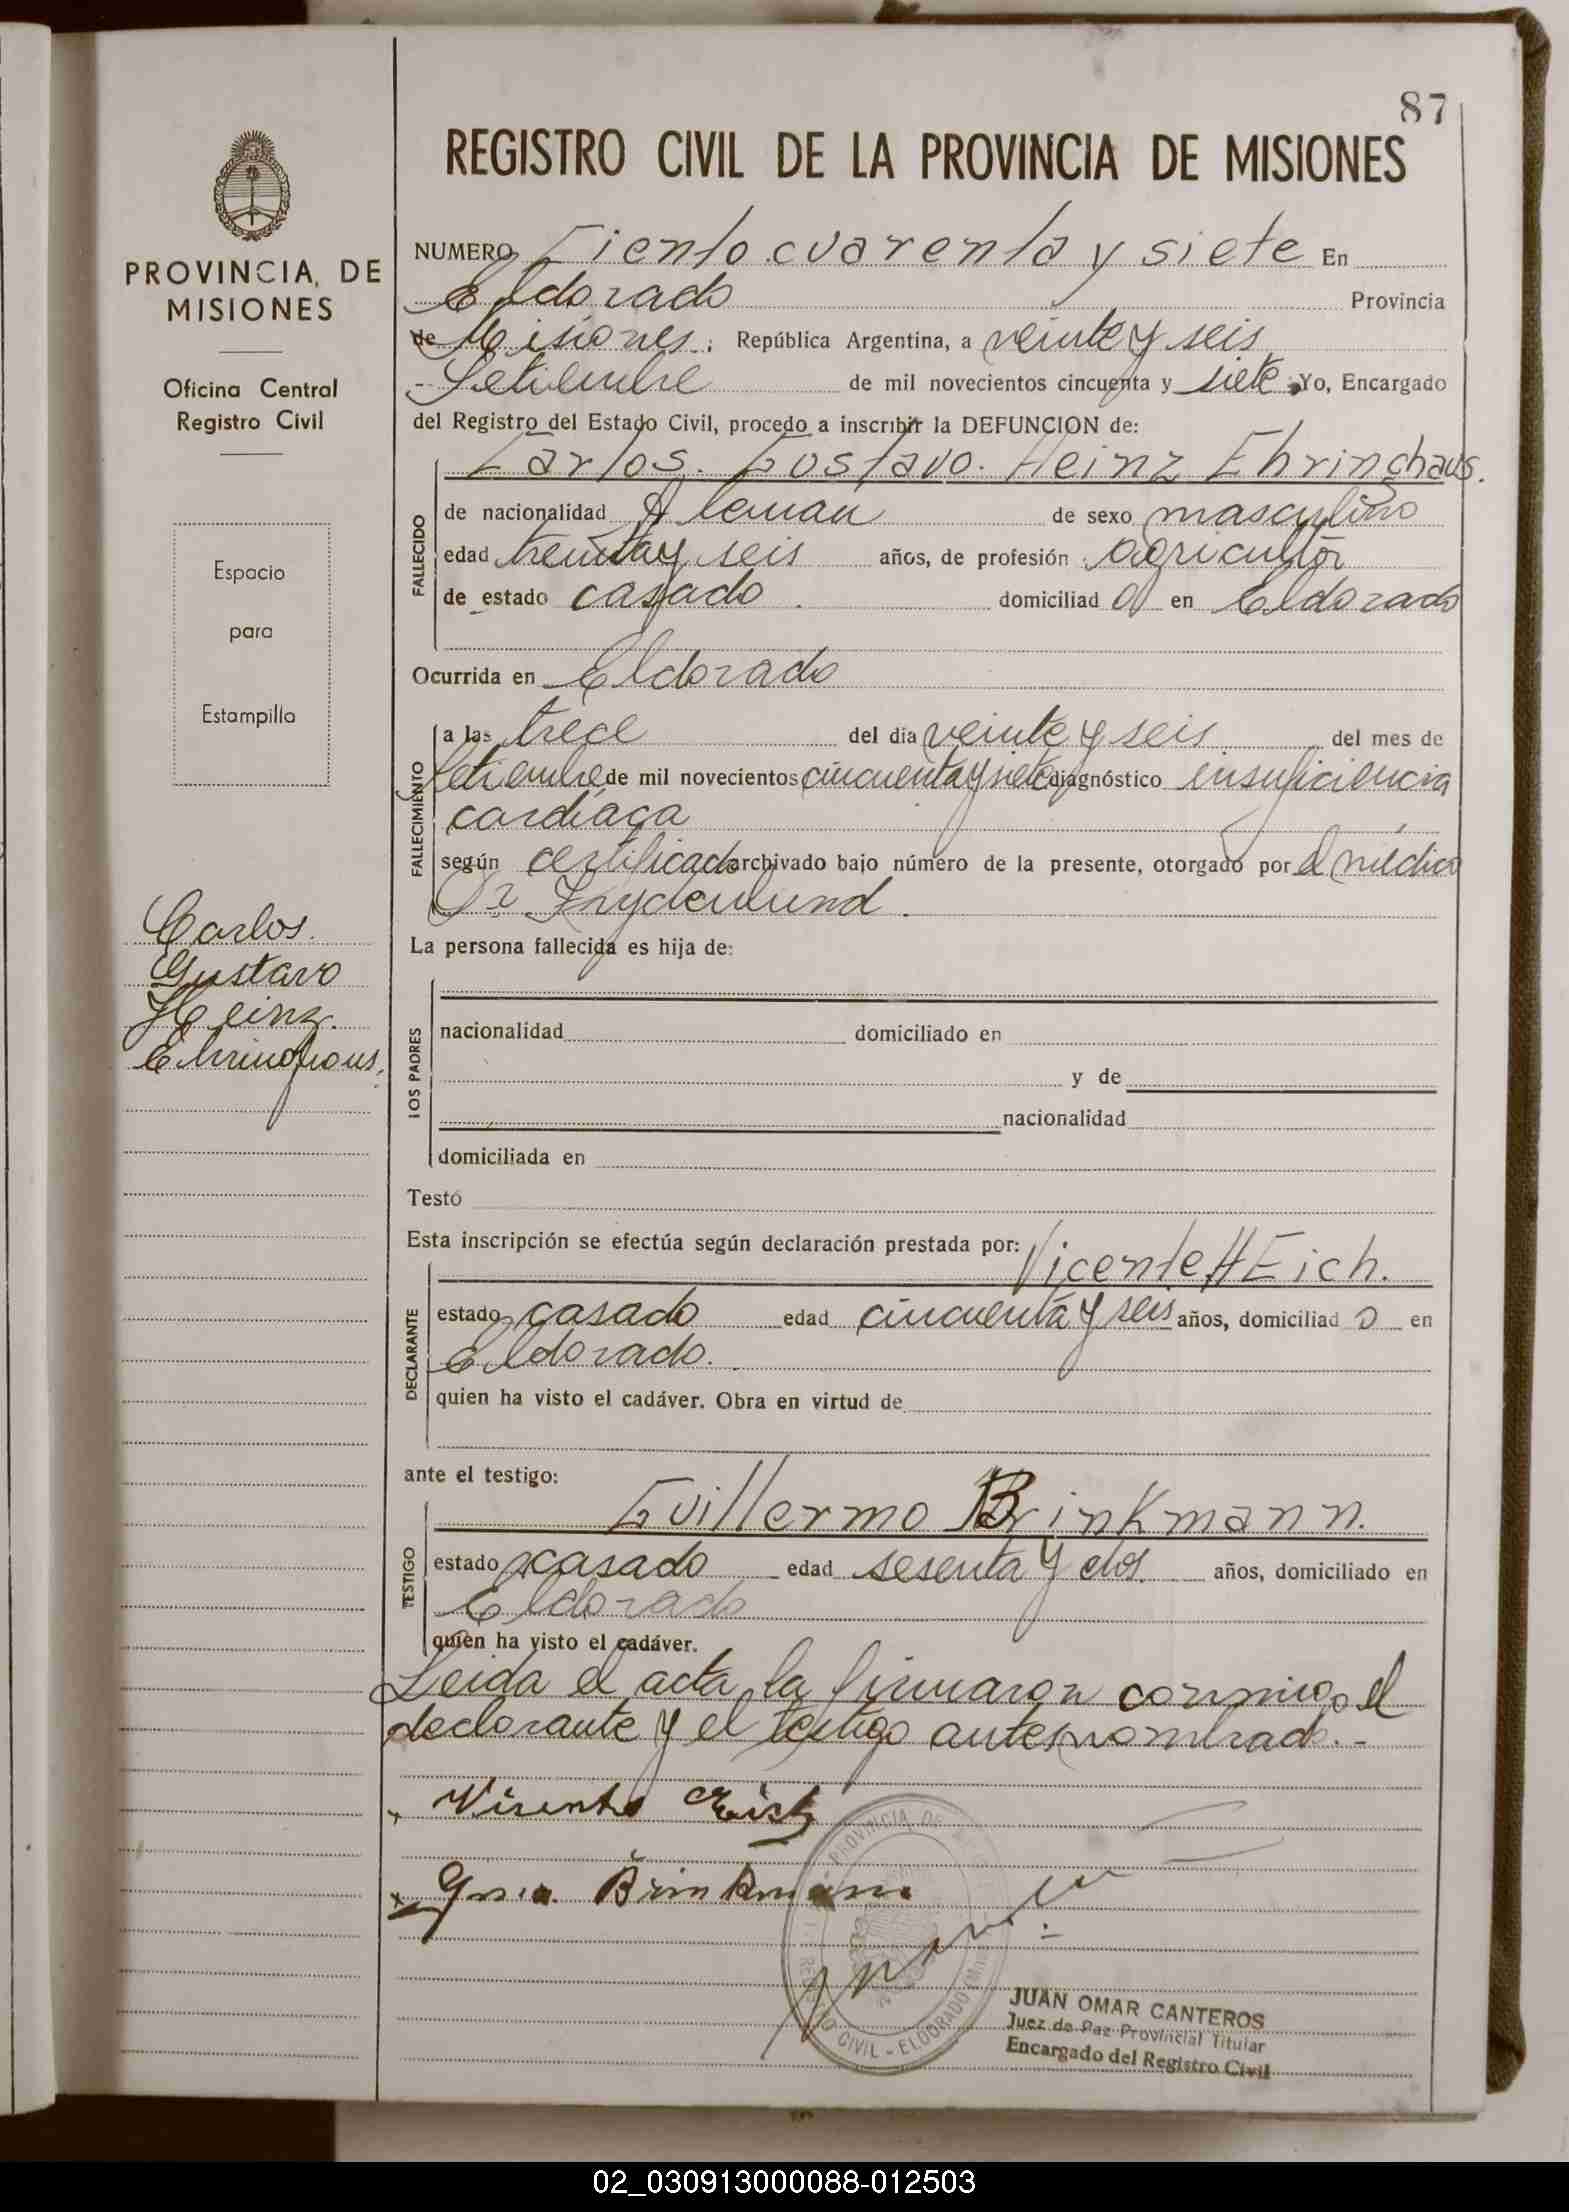 87
REGISTRO CIVIL DE LA PROVINCIA DE MISIONES
PROVINCIA DE
MISIONES
Oficina Central
Registro Civil
Espacio
para
Estampilla
Carlos
Gustavo
Heinz
Ehringhaus
NUMERO Ciento cuarenta y siete En
Eldorado Provincia
de Misiones, República Argentina, a veinte y seis
Setiembre de mil novecientos cincuenta y siete. Yo, Encargado
del Registro del Estado Civil, procedo a inscribir la DEFUNCION de:
Carlos. Gustavo. Heinz Ehringhaus.
FALLECIDO
de nacionalidad Aleman de sexo masculino
edad treinta y seis años, de profesión agricultor
de estado casado domiciliad o en Eldorado
Ocurrida en Eldorado
FALLECIMIENTO
a las trece del día veinte y seis del mes de
Setiembre de mil novecientos cincuenta y siete diagnóstico insuficiencia
cardíaca
según certificado archivado bajo número de la presente, otorgado por el médico
Dr
La persona fallecida es hija de:
LOS PADRES
nacionalidad domiciliado en
y de
nacionalidad
domiciliada en
Testó
Esta inscripción se efectúa según declaración prestada por:
Vicente H Eich.
DECLARANTE
estado casado edad cincuenta y seis años, domiciliad o en
Eldorado.
quien ha visto el cadáver. Obra en virtud de
ante el testigo:
Guillermo Brinkmann.
TESTIGO
estado casado edad sesenta y dos años, domiciliado en
Eldorado
quien ha visto el cadáver.
Leida el acta la firmaron conmigo el
declarante y el testigo antes nombrado.-
Brinkmann
PROVINCIA DE
CIVIL - ELDORADO
JUAN OMAR CANTEROS
Juez de Paz Provincial Titular
Encargado del Registro Civil
02_030913000088-012503